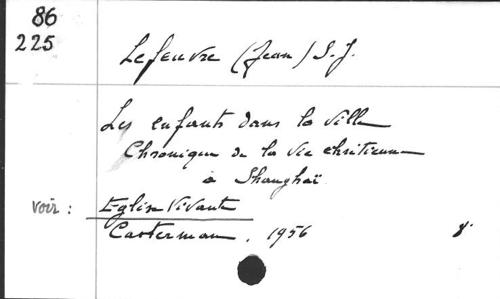 86
225
Lefeuvre (Jean) S.J.
Les enfants dans la ville
Chronique de la vie chrétienne
à Shanghaï
voir : Eglise Vivante
Casterman, 1956